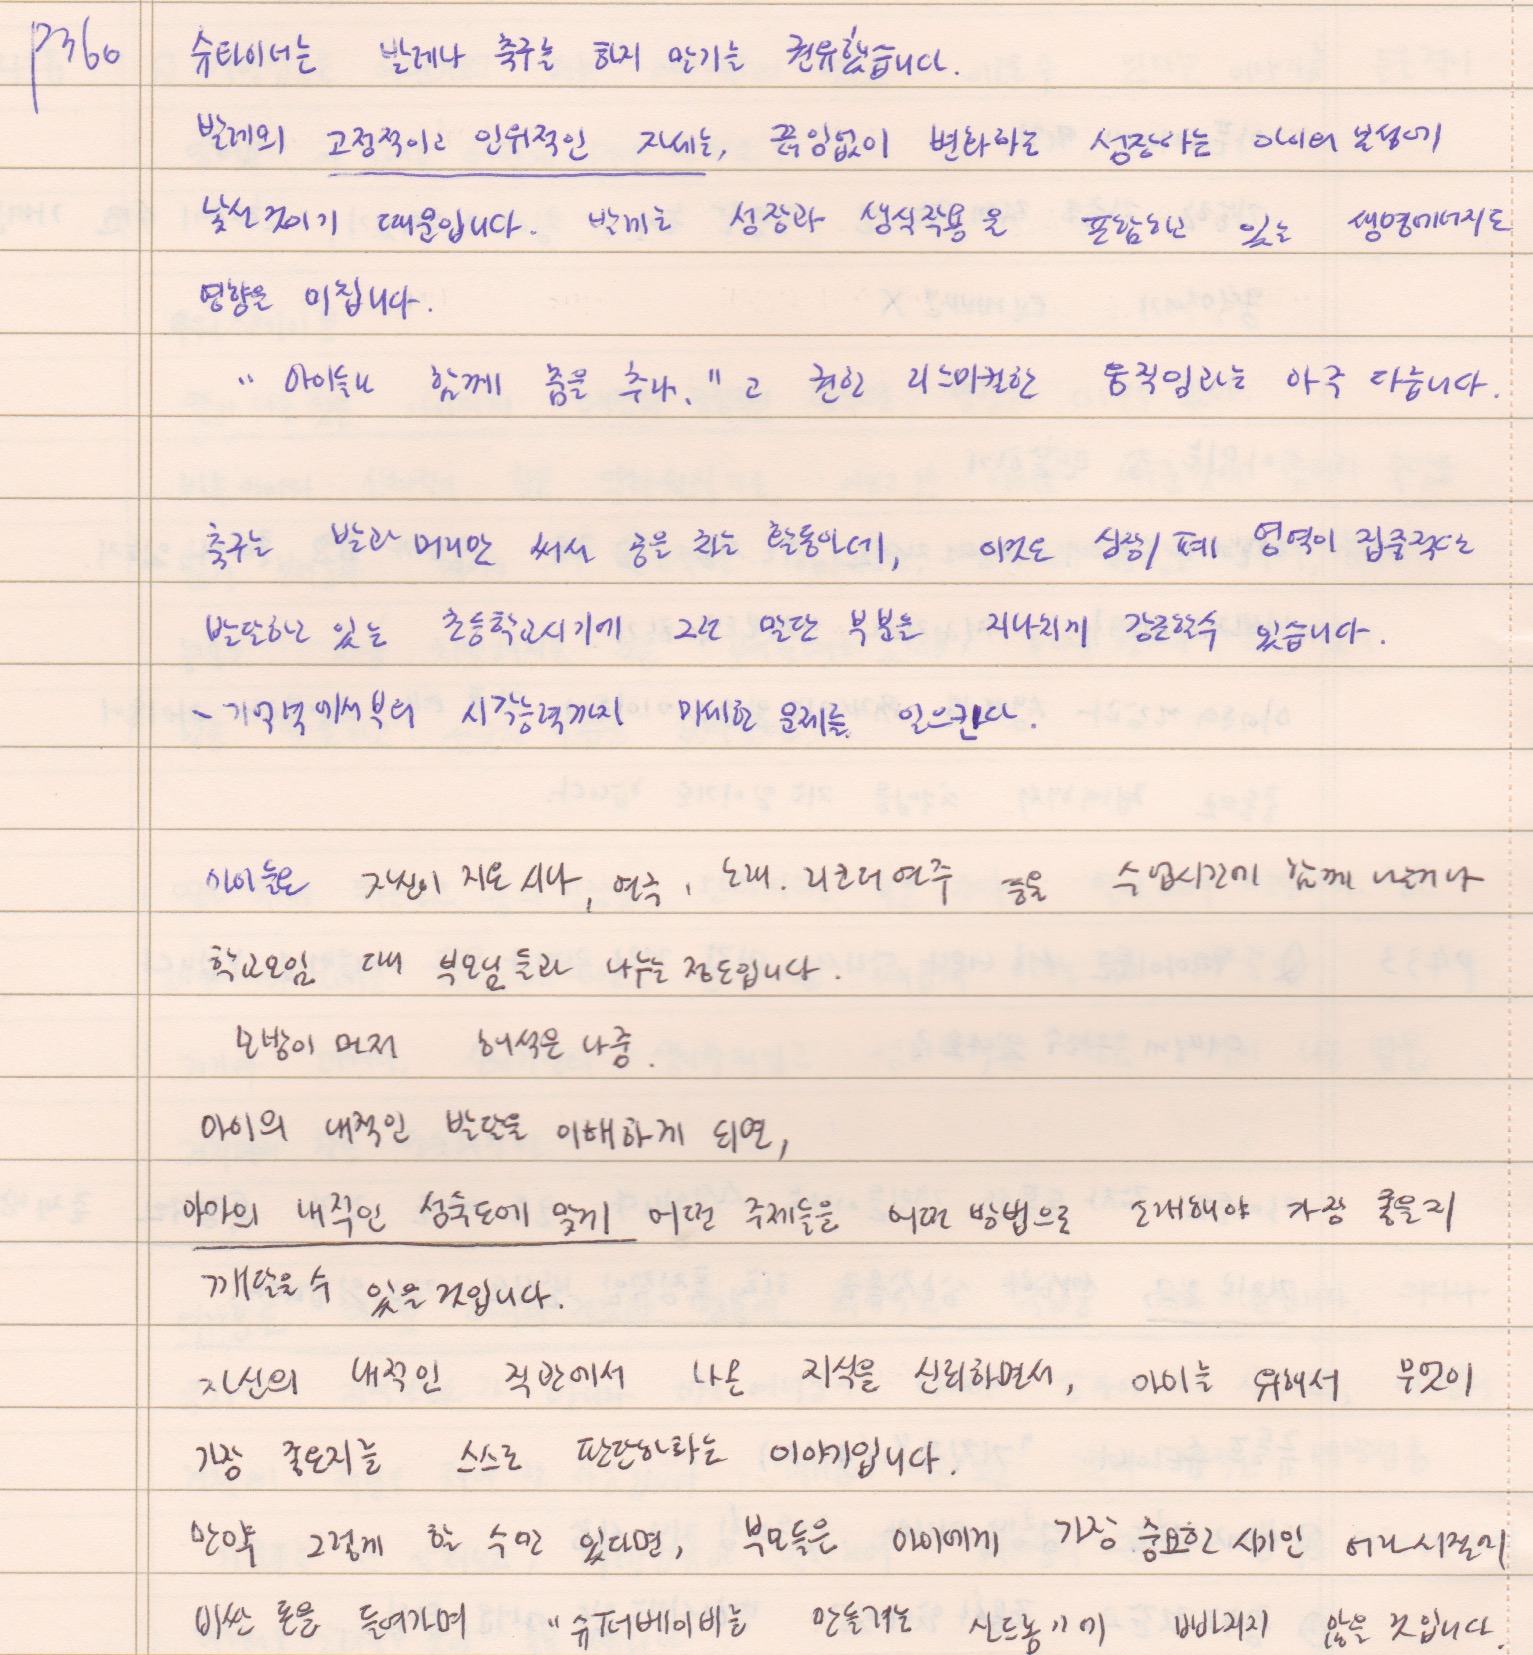 P360 슈타이너는 발레나 축구를 하지 않기를 권유했습니다.
발레의 고정적이고 인위적인 자세는, 끊임없이 변화하는 성장하는 아이의 본성에
낯선것이기 때문입니다. 발레는 성장과 생식작용을 포함하고 있는 생명에너지도
영향을 미칩니다.
"아이들과 함께 춤을 추라."고 권한 리드미컬한 움직임과는 아주 다릅니다.
축구는 발과 머리만 써서 공을 차는 활동인데, 이것도 심장/폐 영역이 집중적으로
발달하고 있는 초등학교시기에 그런 말단 부분을 지나치게 강조할수 있습니다.
~ 기억력에서부터 시각능력까지 미세한 문제를 일으킨다.
아이들은 자신이 지은 시나, 연극, 노래. 리코더연주 등을 수업시간에 함께 나누거나
학교모임 때 부모님들과 나누는 정도입니다.
모방이 먼저 해석은 나중.
아이의 내적인 발달을 이해하게 되면,
아이의 내적인 성숙도에 맞게 어떤 주제들을 어떤 방법으로 소개해야 가장 좋을지
깨달을 수 있을것입니다.
자신의 내적인 직관에서 나온 지식을 신뢰하면서, 아이를 위해서 무엇이
가장 좋은지를 스스로 판단하라는 이야기입니다.
만약 그렇게 할 수만 있다면, 부모들은 아이에게 가장 중요한 시기인 어린시절에
비싼 돈을 들여가며 "슈퍼베이비를 만들려는 신드롬"에 빠지지 않을 것입니다.